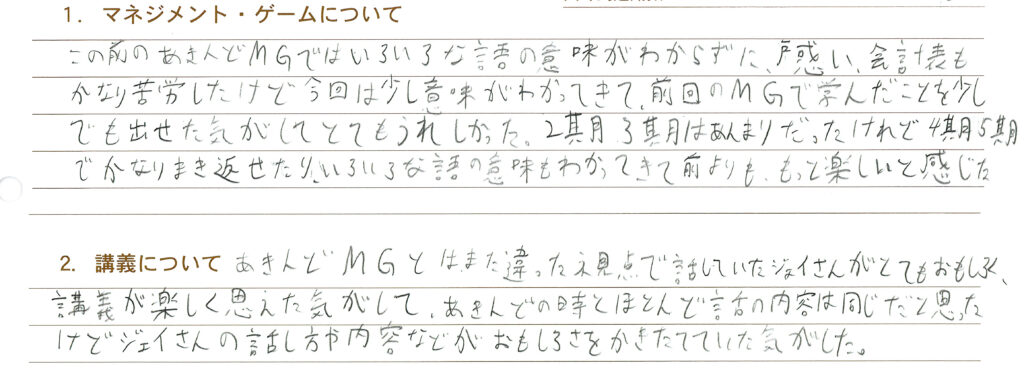 1. マネジメント・ゲームについて
この前のあきんどMGではいろいろな語の意味がわからずに、戸惑い、会計表も
かなり苦労したけど今回は少し意味がわかってきて、前回のMGで学んだことを少し
でも出せた気がしてとてもうれしかった。2期3期はあんまりだったけれど4期5期
でかなりまき返せたり、いろいろな語の意味もわかってきて前よりも、もっと楽しいと感じた
2. 講義について あきんどMGとはまた違った視点で話していたジェイさんがとてもおもしろく、
講義が楽しく思えた気がして、あきんどの時とほとんど話の内容は同じだと思った
けどジェイさんの話し方や内容などがおもしろさをかきたてていた気がした。